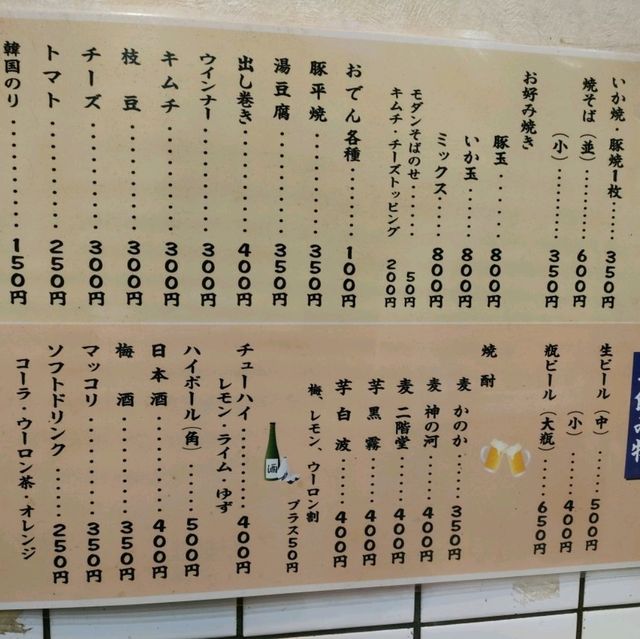 いか焼・豚焼1枚・・・350円
焼そば（並）・・・600円
（小）・・・350円
お好み焼き
豚玉・・・・・800円
いか玉・・・・・800円
ミックス・・・・・800円
モダンそばのせ・・・・・・50円
キムチ・チーズトッピング 200円
おでん各種・・・・・・・・100円
豚平焼・・・・・・・・350円
湯豆腐・・・・・・・・350円
出し巻き・・・・・・・・400円
ウインナー・・・・・・・・300円
キムチ・・・・・・・・300円
枝豆・・・・・・・・300円
チーズ・・・・・・・・300円
トマト・・・・・・・・250円
韓国のり・・・・・・・・150円
生ビール（中）・・・・500円
（小）・・・・400円
瓶ビール（大瓶）・・・・650円
焼酎
麦 かのか・・・・・350円
麦 神の河・・・・・400円
麦 二階堂・・・・・400円
芋 黒霧・・・・・400円
芋 白波・・・・・400円
梅、レモン、ウーロン割
プラス50円
酒
チューハイ・・・・・・・・400円
レモン・ライム・ゆず
ハイボール（角）・・・・・500円
日本酒・・・・・・・・400円
梅酒・・・・・・・・350円
マッコリ・・・・・・・・350円
ソフトドリンク・・・・・250円
コーラ・ウーロン茶・オレンジ